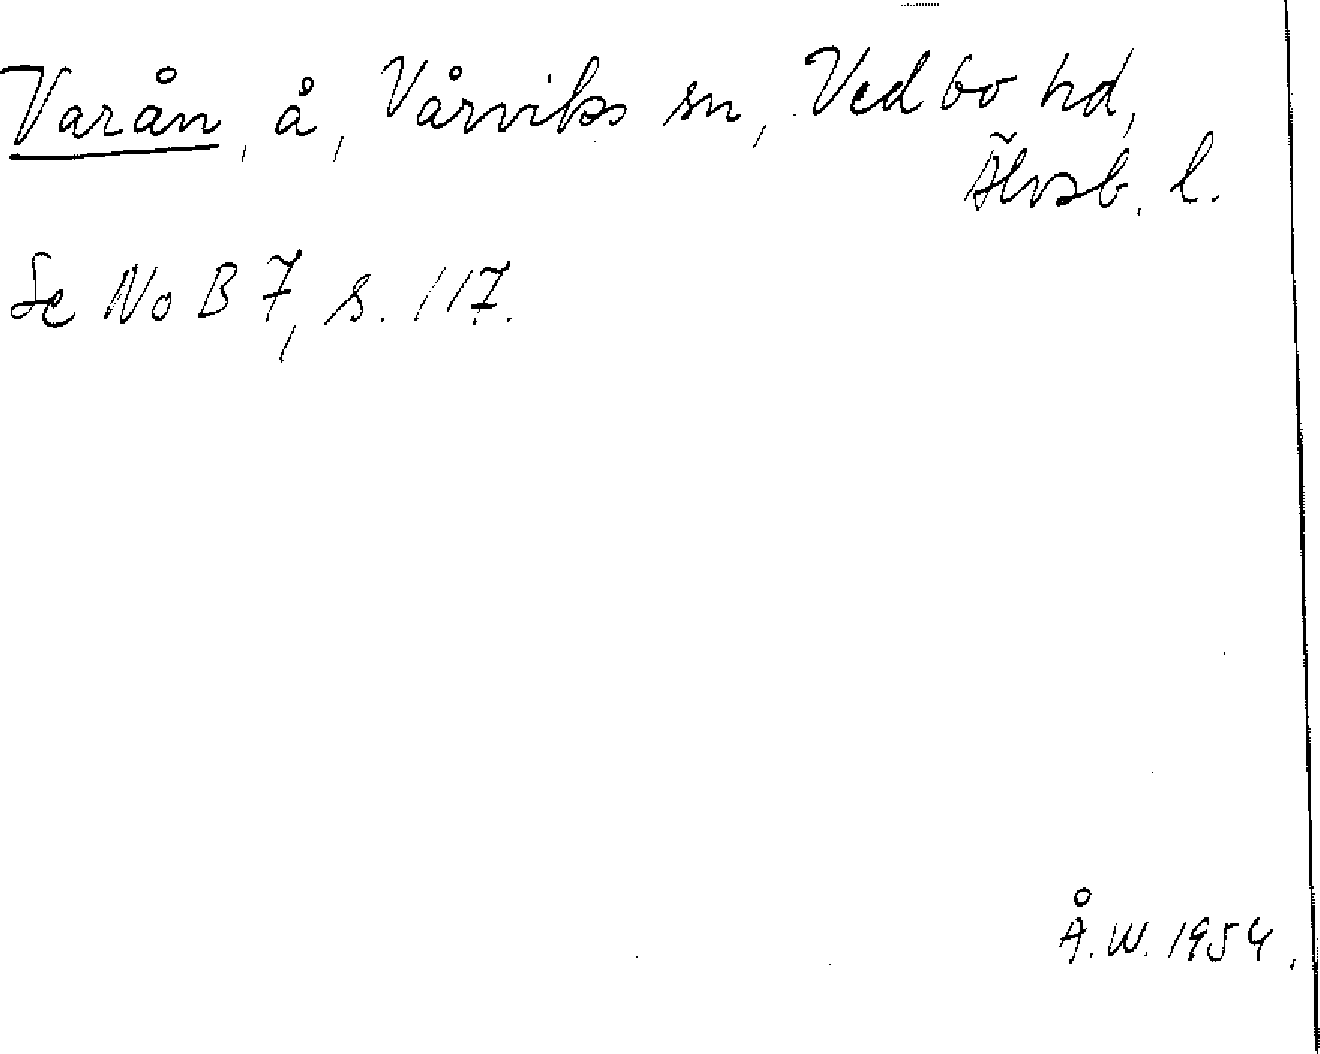 Varån, å, Vårviks sn, Vedbo hd,
Älvsb. l.
Se NoB 7, s. 117.
Å.W. 1954.